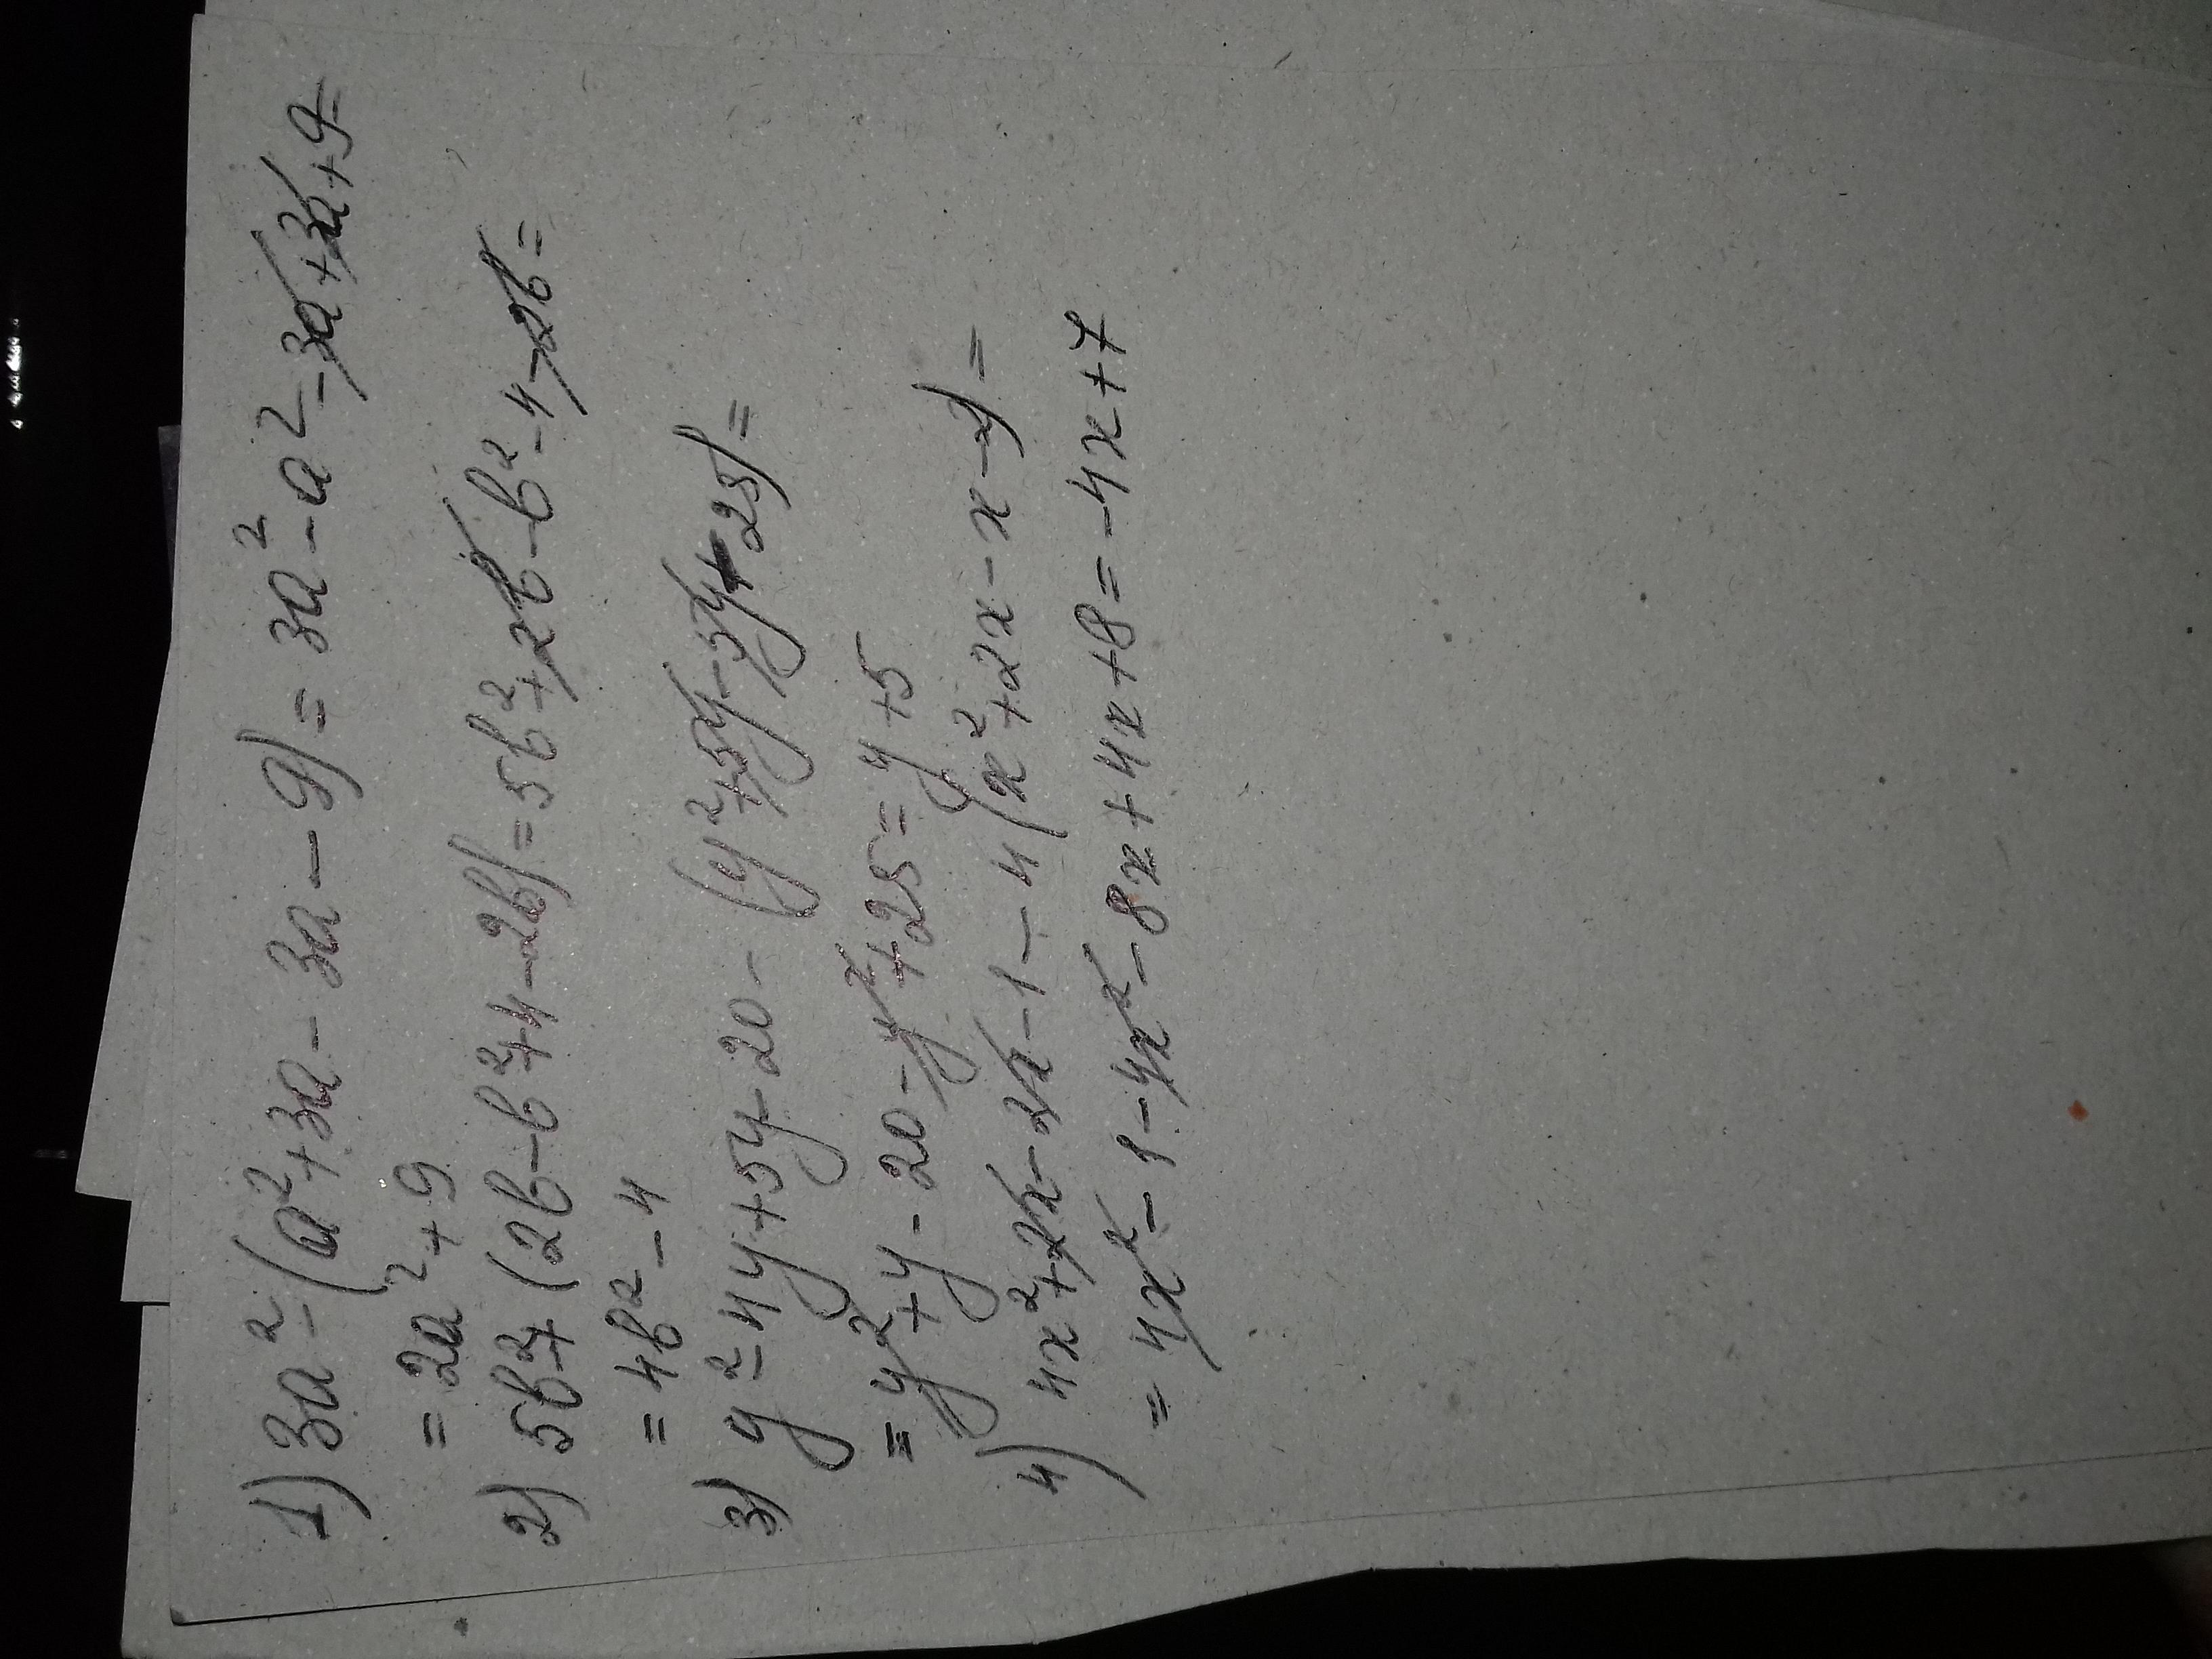 1) 3a² - (a² + 3a - 3a - 9) = 3a² - a² - 3a + 3a + 9 =
= 2a² + 9
2) 5b² + (2b - b² + 4 - 2b) = 5b² + 2b - b² - 4 - 2b =
= 4b² - 4
3) y² - 4y + 5y - 20 - (y² + 5y - 5y - 25) =
= y² + y - 20 - y² + 25 = y + 5
4) 4x² + 2x - 2x - 1 - 4(x² + 2x - x - 2) =
= 4x² - 1 - 4x² - 8x + 4x + 8 = -4x + 7